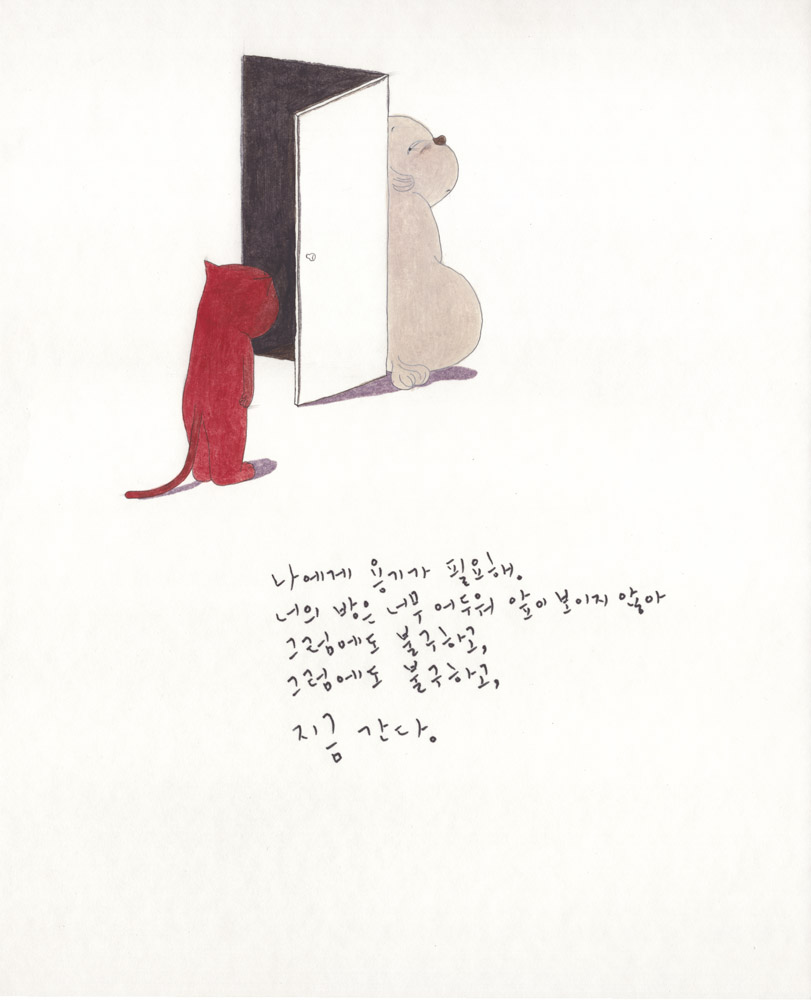 나에게 용기가 필요해.
너의 방은 너무 어두워 앞이 보이지 않아
그럼에도 불구하고,
그럼에도 불구하고,
지금 간다.